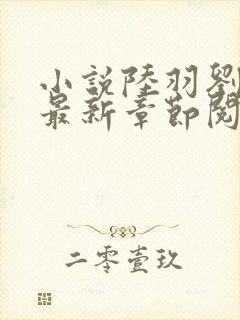 小説陸羽劉
最新章節閱
二零壹玖